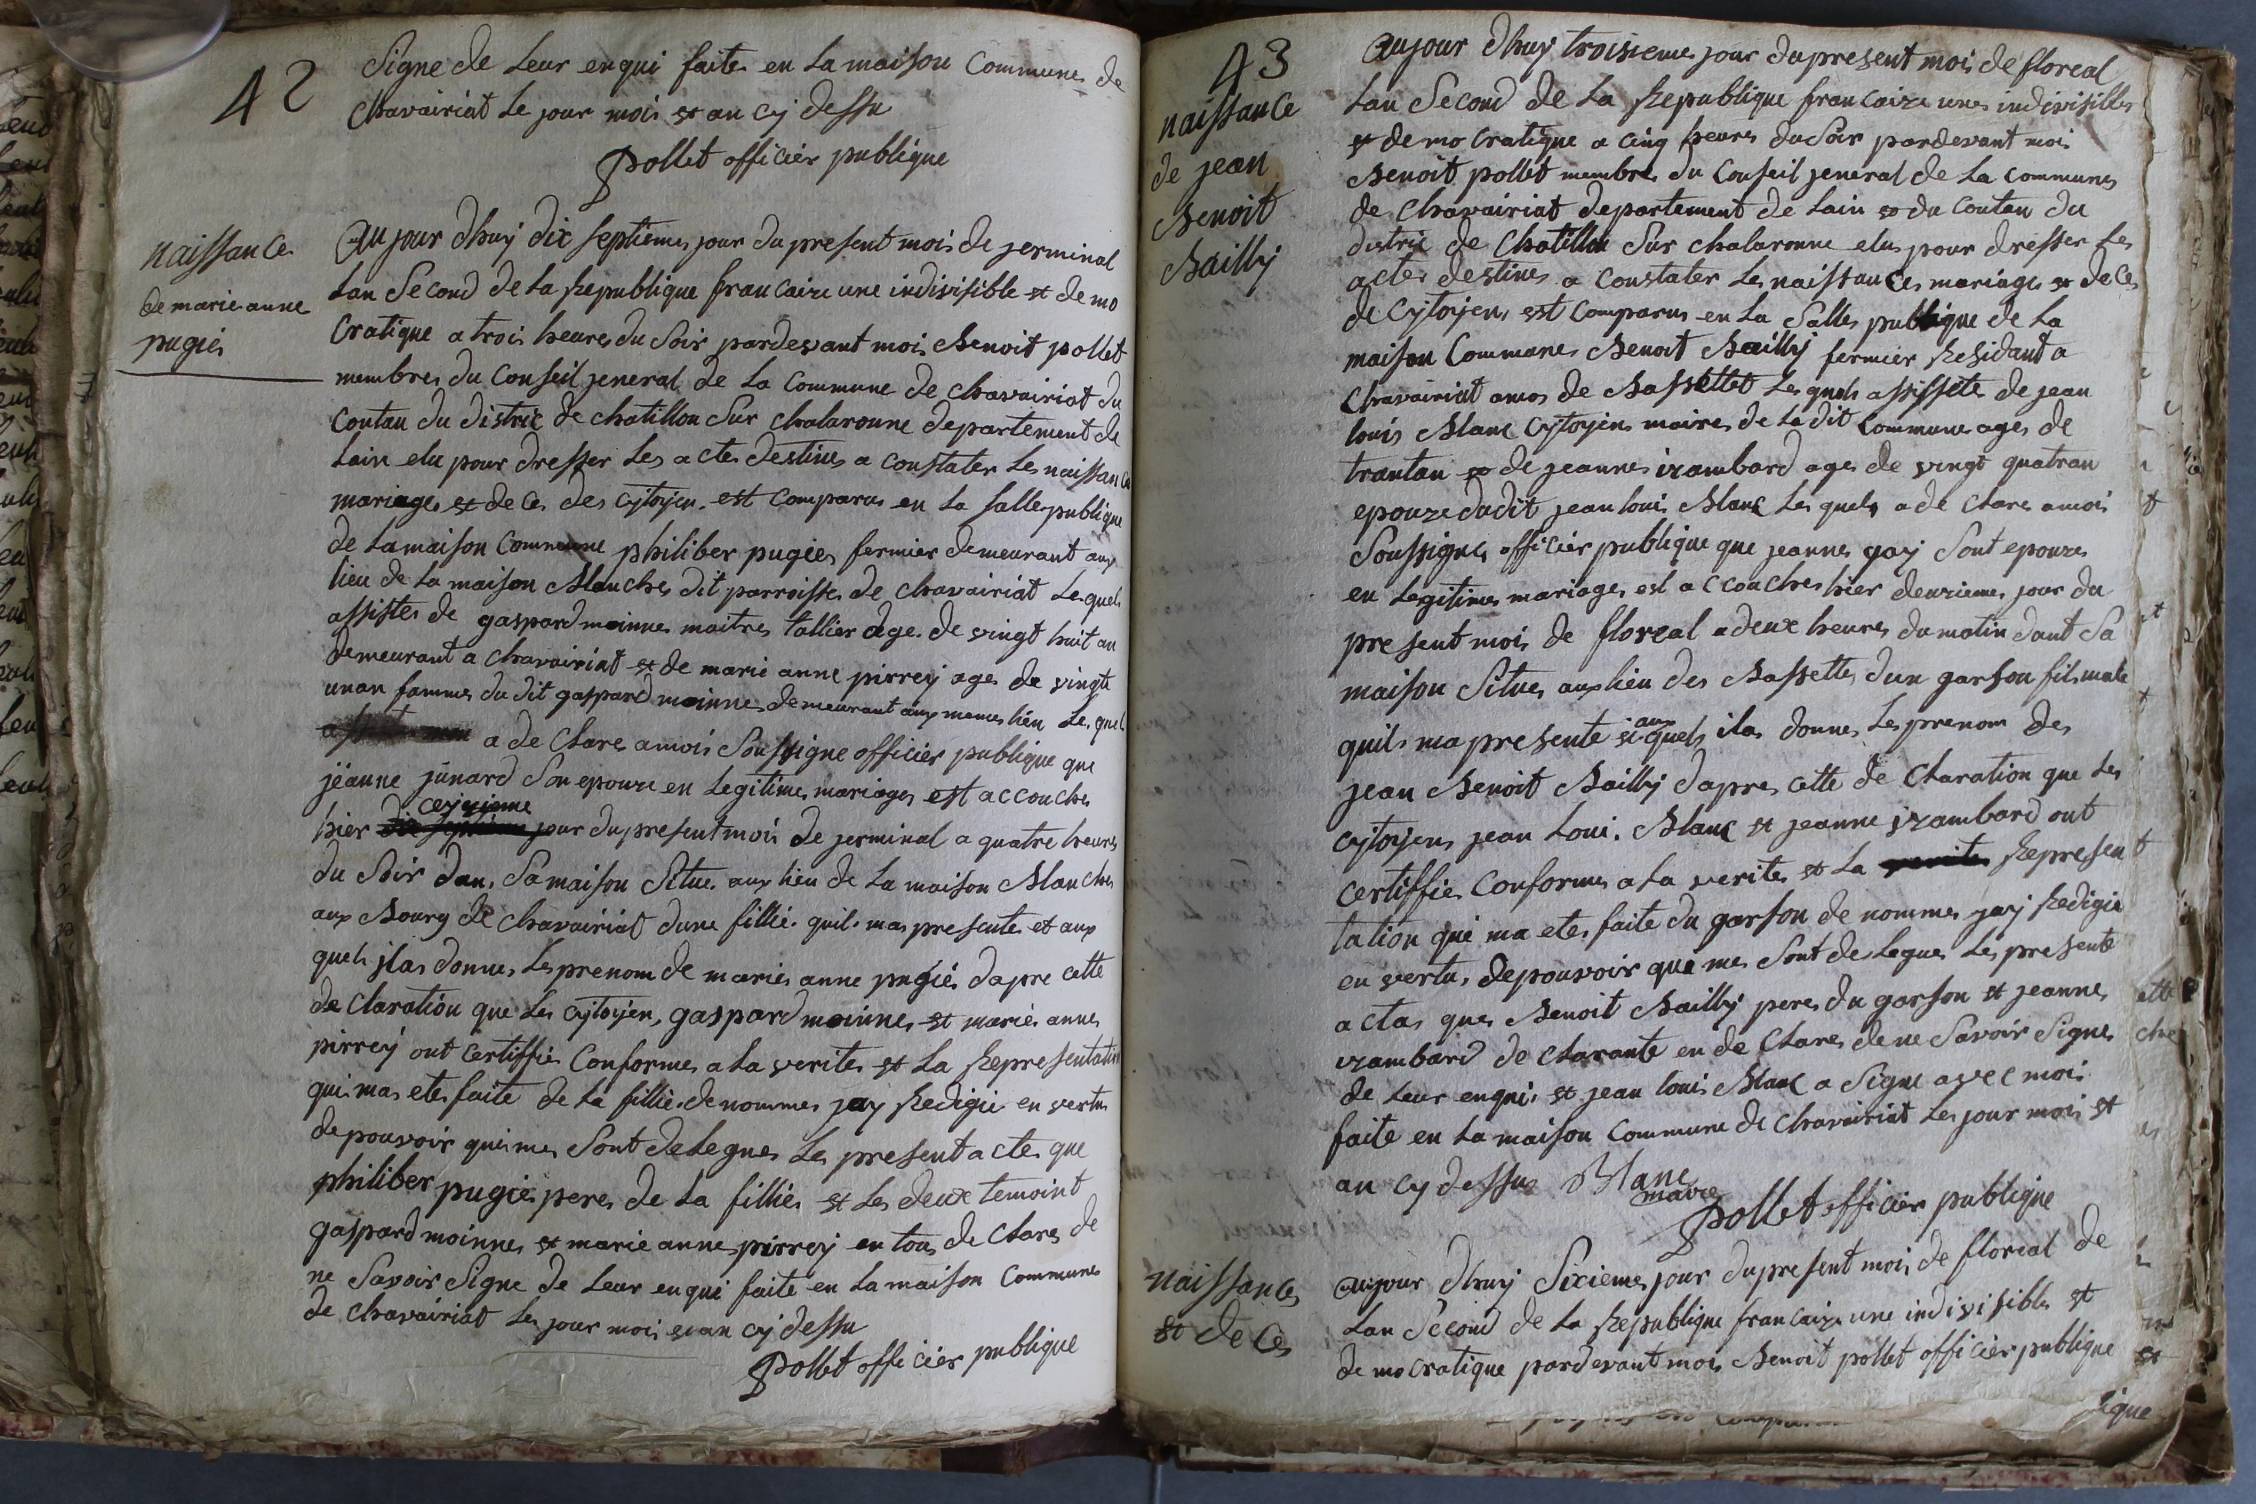 42
Signe de Leur enqui faite en La maison Commune de
Chavairiat Le jour mois et an cy dessu
pollet officier publique
naissance
de marie anne
pugié
Aujour dhuy dix septieme jour du present mois de jerminal
Lan Second de La Republique francaize une indivisible et demo
Cratique a trois heures du Soir pardevant moi Benoit pollet
membre du Conseil jeneral de La Commune de Chavairiat du
Contau du distric de chatillon Sur chalaronne departement de
Lain elu pour dresser Les acte destines a constater Le naissance
mariage et de Ces des Cytoyen est Comparus en La salle publique
de La maison Commune philiber pugies fermier demeurant aux
lieu de La maison Blanche dit parroisse de Chavairiat Le quel
assistes de gaspard moinne maitres tallier age de vingt huit an
demeurant a Chavairiat et de marie anne pirrey age de vingte
unan famme du dit gaspard moinne demeurant aux meme lieu Le quel
a de Clare a moi Soussigne officier publique que
jeanne junard Son epouze en Legitime mariage est accouche
cezieme
hier dix septieme jour du present mois de jerminal a quatre heures
du Soir dan Sa maison Situe aux lieu de La maison Blanche
aux Bourg de Chavairiat dune fillie quil ma presente et aux
quels jl a donne Le prenom de marie anne pugié dapre cette
de Claration que Les Cytoyen gaspard moinne et marie anne
pirrey ont Certiffie Conforme a La verite et La Representation
qui mas ete faite de La fillie denommes jay Redigie en vertu
de pouvoir quimes Sont de Legue Le present acte que
philiber pugie pere de La fillie et Les deux temoint
gaspard moinne et marie anne pirrey en tous de Clare de
ne Savoir Signe de Leur enqui faite en La maison Commune
de Chavairiat Le jour mois et an cy dessu
pollet officier publique
43
naissance
de jean
Benoit
Bailly
Aujour dhuy troisieme jour du present mois de floreal
Lan Second de La Republique francaize une indivisible
et demo cratique a cinq heures du Soir pardevant moi
Benoit pollet membre du Conseil jeneral de La commune
de Chavairiat departement de Lain et du Contau du
distric de Chatillon Sur chalaronne elu pour dresser Les
acte destines a Constater Le naissances mariage et de Ces
de Cytoyen est Comparu en La Salle publique de La
maison Commune Benoit Bailly fermier Residant a
Chavairiat amos de Bassettet Le quels assistete de jean
louis Blanc Cytoyen maire de La dit Commune age de
trantan et de jeanne irambard age de vingt quatran
epouze dudit jean loui Blanc Les quels a de Clare a moi
Soussigne officier publique que jeanne gay Sont epouze
en Legitime mariage est accouche hier deuzieme jour du
present moi de floreal a deux heures du matin dant Sa
maison Situe aux lieu des Bassette dun garson fil male
aux
quil ma presente si quels il a donne Le prenom de
jean Benoit Bailly dapre cette de Claration que Les
Cytoyen jean Loui Blanc et jeanne irambard ont
Certiffie Conforme a La verite et La verite Represen
tation qui ma ete faite du garson de nomme jay Redigie
en vertu de pouvoir que me Sont de Legue Le presente
acta que Benoit Bailly pere du garson et jeanne
irambard de Clarante en de Clare de ne Savoir Signe
de Leur enqui et jean loui Blanc a Signe avec moi
faite en La maison Commune de Chavairiat Le jour mois et
an cy dessu Blanc
maire
pollet officier publique
naissance
et de Ces
aujour dhuy Sixieme jour du present moi de floreal de
Lan Second de La Republique francaize une indivisible et
demo cratique pardevant moi Benoit pollet officier publique